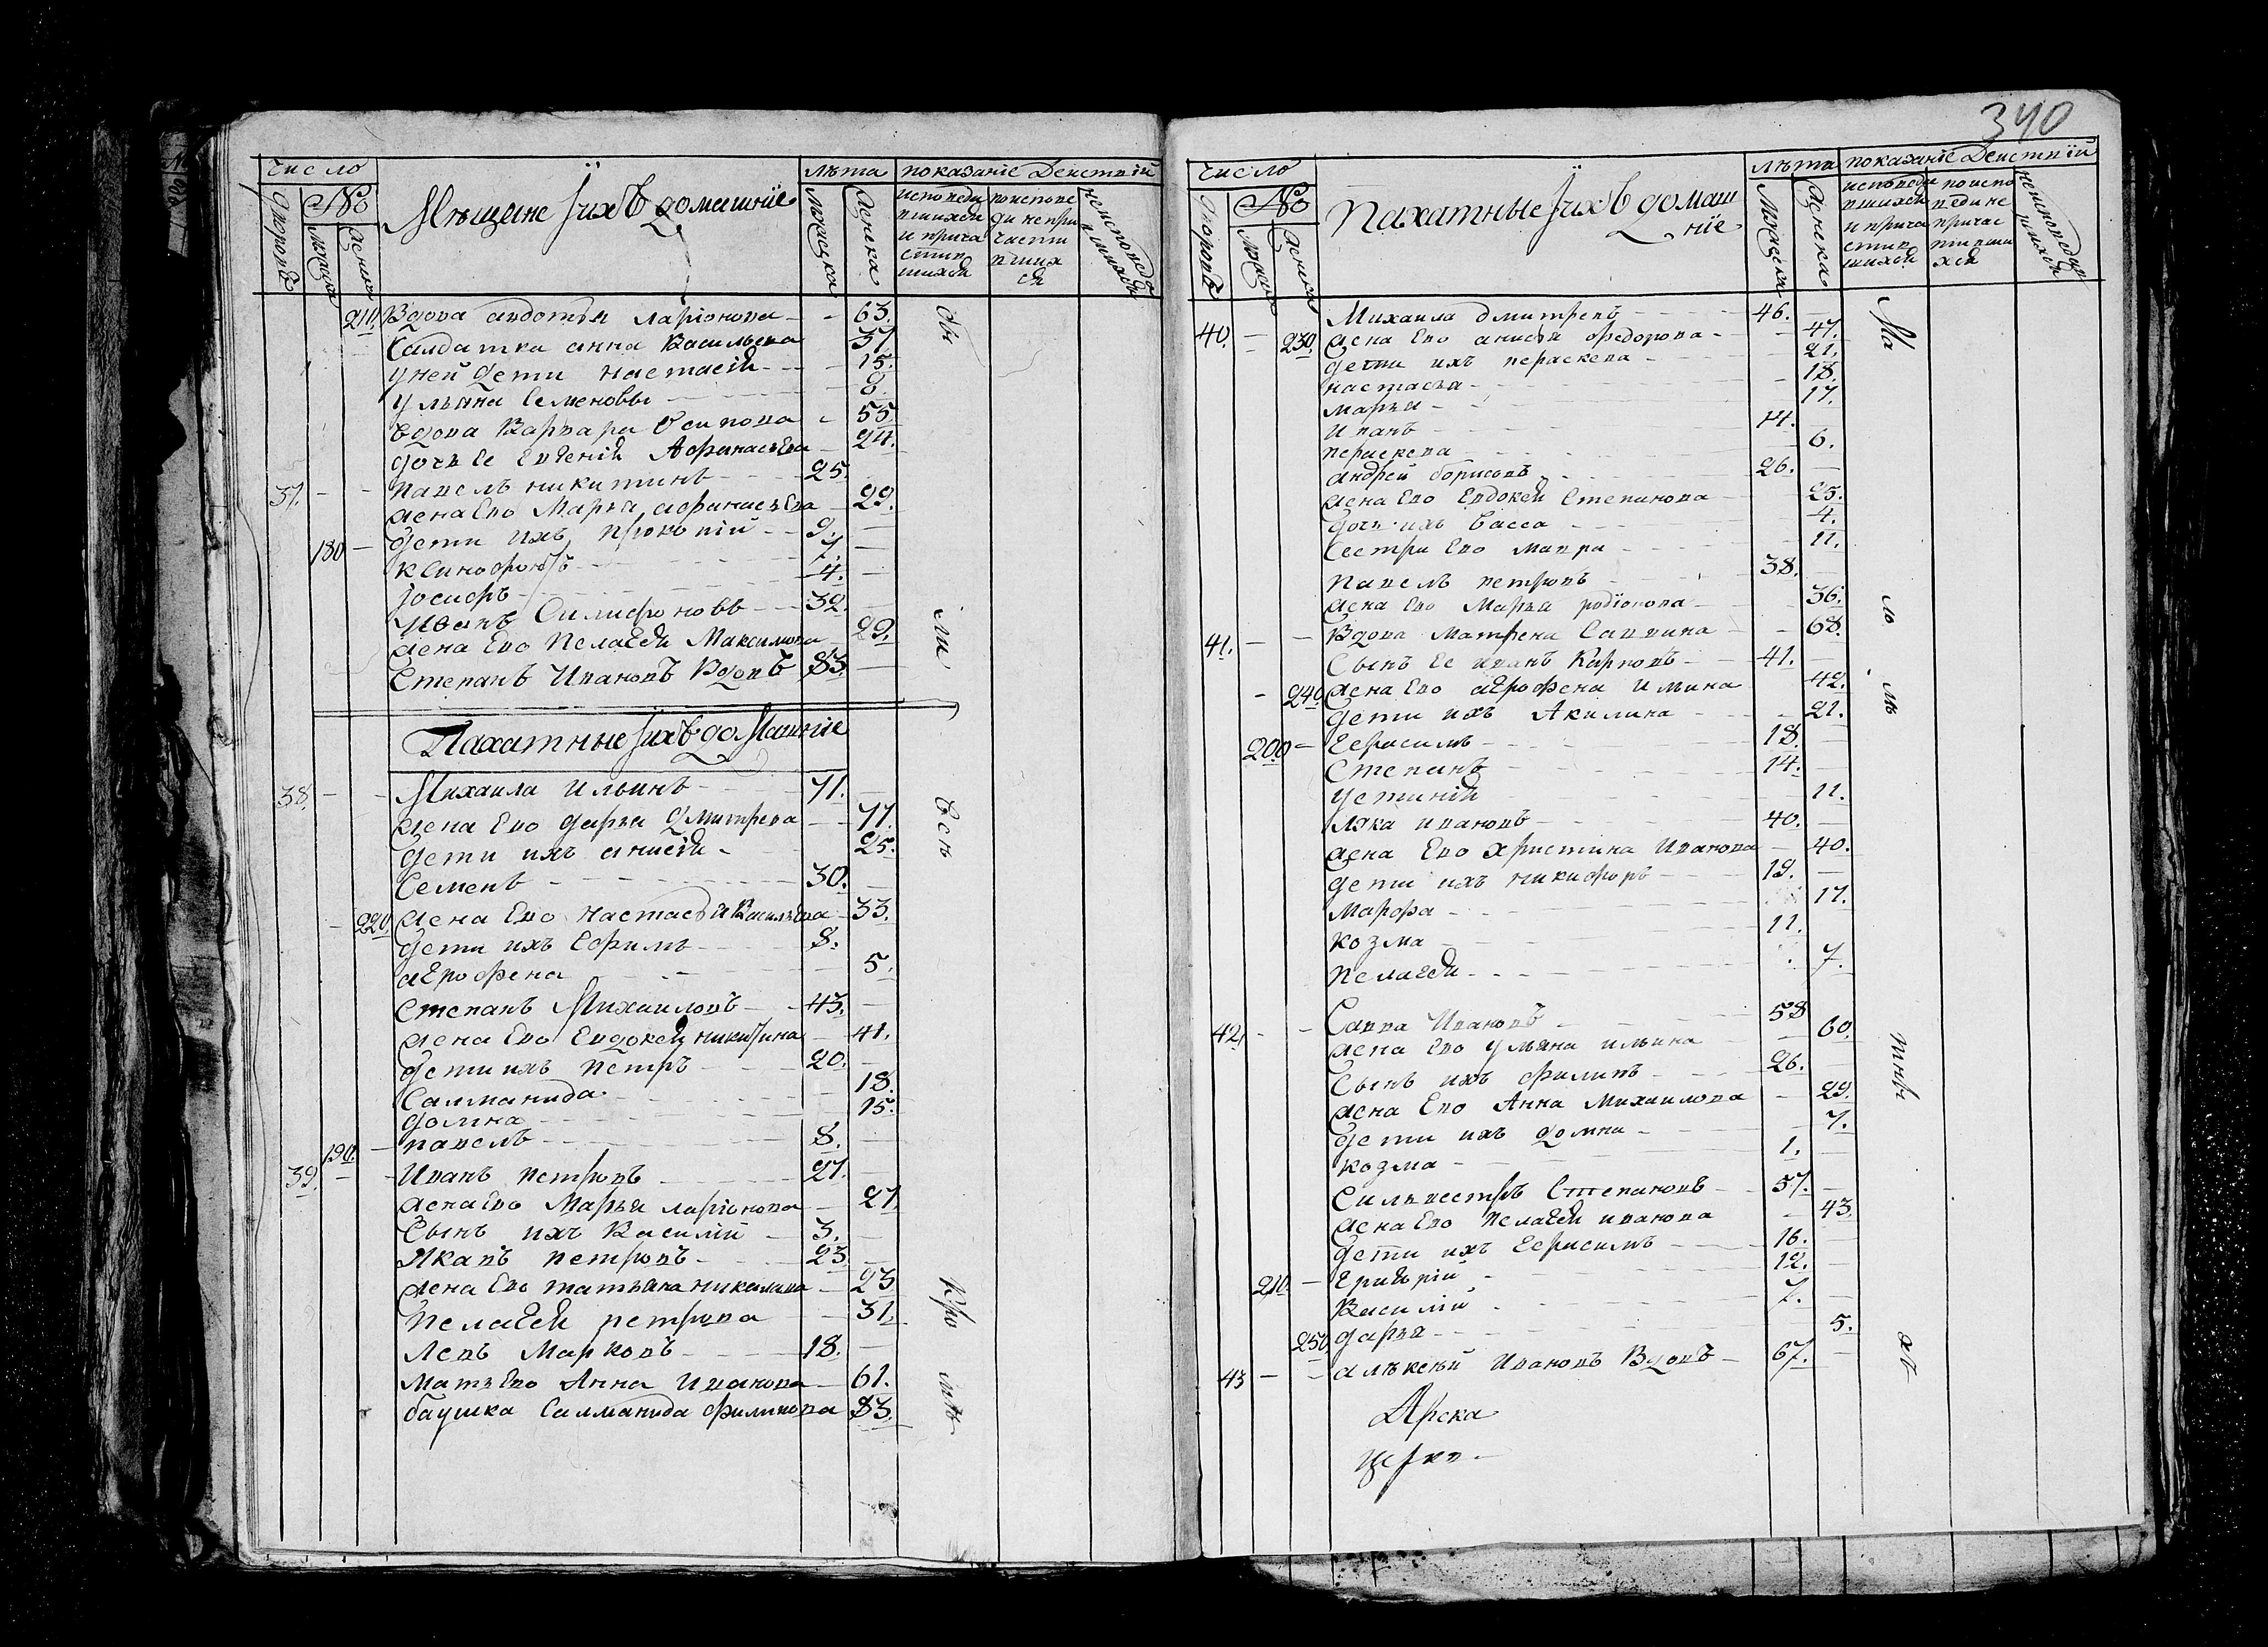 340
число
№
дворовъ
мужска
женска
Мѣщане ихъ домашніе
лѣта
мужеска
женска
показаніе действій
исповеда
вшихся
и прича
стив
шихся
по испове
ди непри
части
вших
ся
неисповеда
вшихся
210. Вдова авдотья ларіонова 63.
Салдатка анна Васильева 37
унеи дети настасія 15.
ульяна Семеновы 8
вдова Варвара Осипова 55.
дочь ее Евгенія Афанасьева 24.
37. павелъ никитинъ 25.
жена Ево Марья афанасьева 29.
180 дети ихъ прокопій 9.
ксинофонтъ 7.
іосифъ 4.
Иванъ Силифоновъ 32.
жена Ево Пелагея Максимова 29.
Степанъ Ивановъ Вдовъ 83.
Пахатные ихъ домашніе
38. Михаила ильинъ 71.
жена Ево дарья дмитрева 77.
дети ихъ анисія 25.
Семенъ 30.
220. жена Ево настасья Васильева 33.
дети ихъ Ефимъ 8.
агрофена 5.
Степанъ Михаиловъ 43.
жена Ево Евдокея никитина 41.
дети ихъ петръ 20.
Саламанида 18.
домна 15.
190. павелъ 8.
39. Иванъ петровъ 27.
жена Ево Марья ларіонова 27.
Сынъ ихъ Василій 3.
Якавъ петровъ 23
жена Ево татьяна никалаева 23
Пелагея петрова 31.
Левъ Марковъ 18.
мать Ево Анна Иванова 61.
баушка Саламанида филипова 83.
бы
ли
всѣ
Кро
мѣ
число
№
дворовъ
мужска
женска
Пахатные ихъ домаш
ніе
лѣта
мужеска
женска
показаніе действій
исповеда
вшихся
и прича
стив
шихся
по испо
веди не
причас
тивши
хся
неисповеда
вшихся
40. Михаила дмитревъ 46.
230. жена Ево анисья федорова 47.
дети ихъ пераскева 21.
настасья 18.
марья 17.
иванъ 14.
пераскева 6.
андрей борисовъ 26.
жена Ево Евдокея Степанова 25.
дочь ихъ васса 4.
Сестра Ево мавра 11.
павелъ петровъ 38.
жена Ево Марья родіонова 36.
41. Вдова матрена Саввина 68.
Сынъ Ее иванъ Карповъ 41.
240. жена Ево агрофена имина 42.
дети ихъ Акилина 21.
200 Герасимъ 18.
Степанъ 14.
устинія 11.
лука ивановъ 40.
жена Ево христина Иванова 40.
дети ихъ никифоръ 19.
марфа 17.
козма 11.
пелагея 7.
42. Савва Ивановъ 58
жена Ево ульяна ильина 60.
Сынъ ихъ филипъ 26.
жена Ево Анна Михаилова 29.
дети ихъ домна 7.
козма 1.
Сильвестръ Степановъ 57.
жена Ево пелагея иванова 43.
дети ихъ Герасимъ 16.
210. григорій 12.
Василій 7.
250. дарья 5.
43 алѣксѣй Ивановъ Вдовъ 67.
Ма
лѣ
тнѣ
хъ